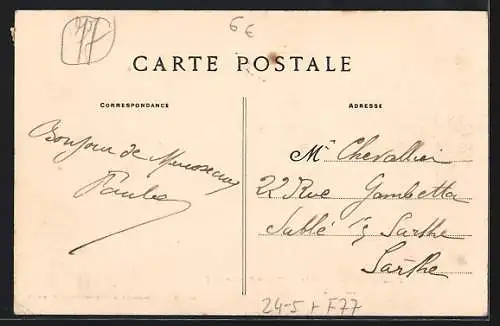 77
6€
CARTE POSTALE
CORRESPONDANCE
ADRESSE
Bonjour de
Paula
Mr Chevallier
22 Rue Gambetta
Sablé s/ Sarthe
Sarthe
24-5 + F77